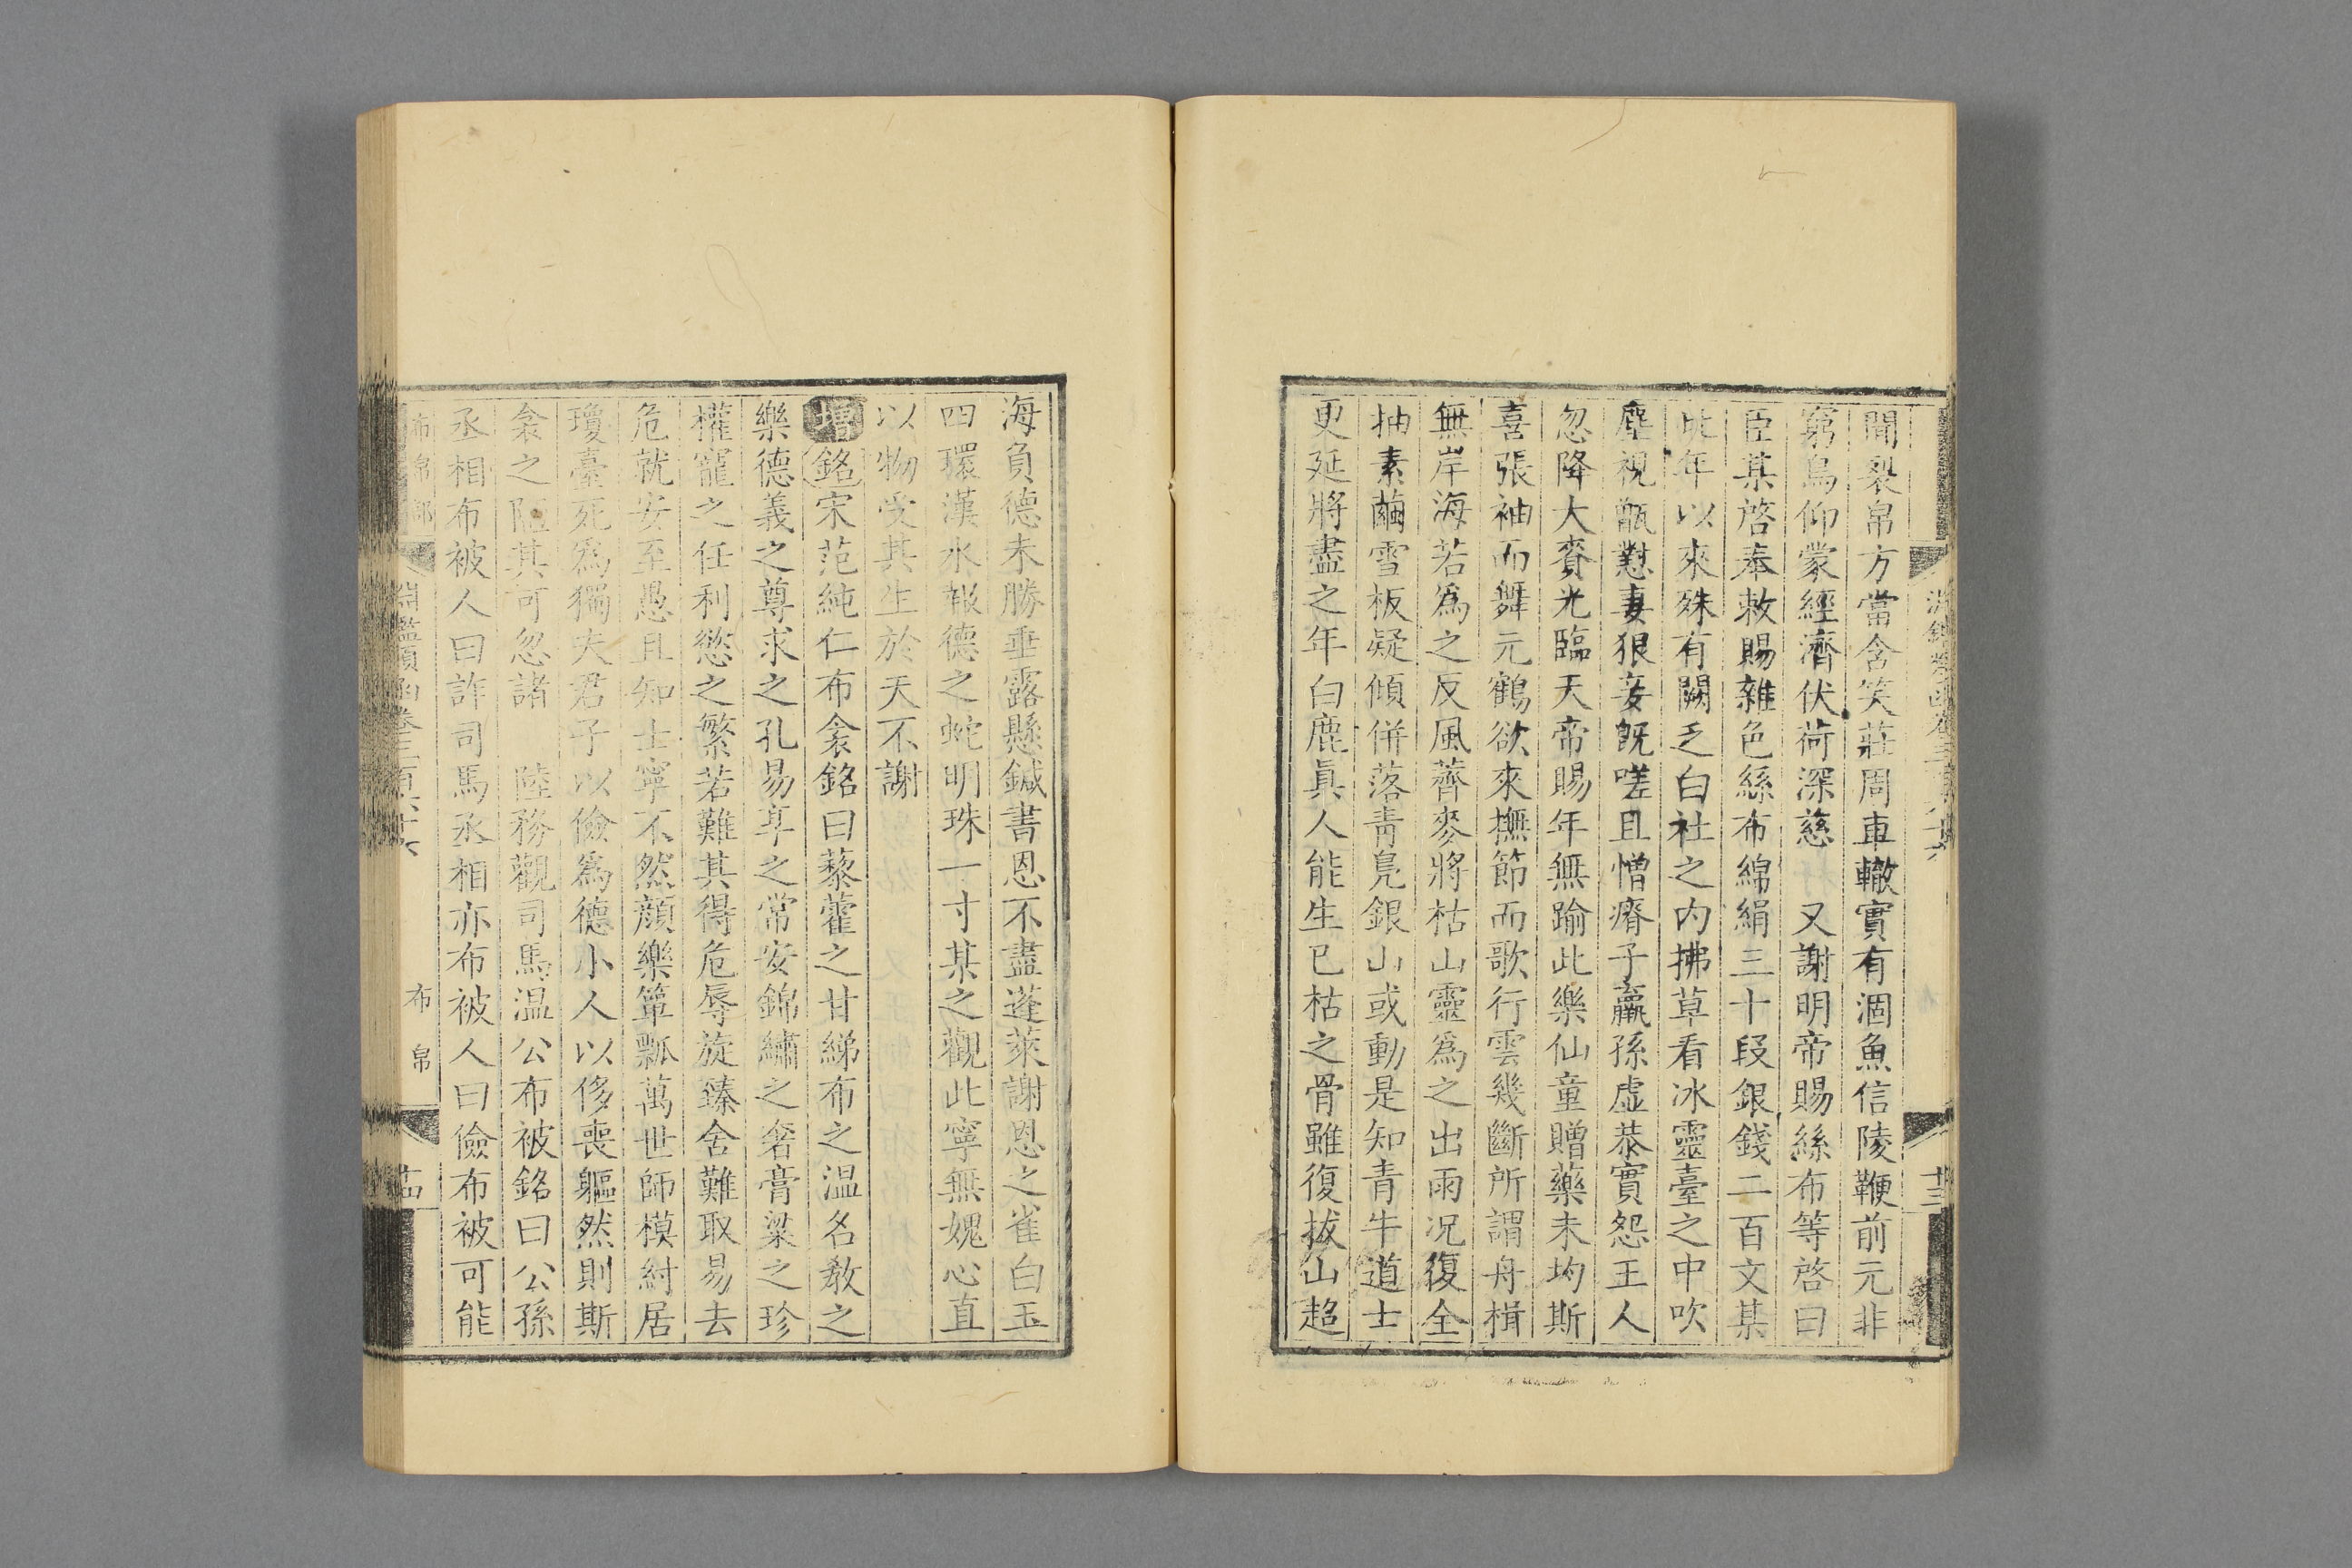 間裂帛方當含笑莊周車轍實有涸魚信陵鞭前元非
窮鳥仰蒙經濟伏荷深慈　又謝明帝賜絲布等啓曰
臣某啓奉敕賜雜色絲布綿絹三十段銀錢二百文某
比年以來殊有闕乏白社之内拂草看冰靈臺之中吹
塵視甑懟妻狠妾既嗟且憎瘠子羸孫虛恭實怨王人
忽降大賚光臨天帝賜年無踰此樂仙童贈藥未均斯
喜張袖而舞元鶴欲來撫節而歌行雲幾斷所謂舟楫
無岸海若爲之反風薺麥將枯山靈爲之出雨況復全
抽素繭雪板疑傾併落青鳧銀山或動是知青牛道士
更延將盡之年白鹿眞人能生已枯之骨雖復拔山超
十三
海負德未勝垂露懸鍼書恩不盡蓬萊謝恩之雀白玉
四環漢水報德之蛇明珠一寸某之觀此寧無媿心直
以物受其生於天不謝
增銘宋范純仁布衾銘曰藜藿之甘綈布之温名敎之
樂德義之尊求之孔易享之常安錦繡之奢膏粱之珍
權寵之任利慾之繁若難其得危辱旋臻舍難取易去
危就安至愚且知士寧不然顔樂簞瓢萬世師模紂居
瓊臺死爲獨夫君子以儉爲德小人以侈喪軀然則斯
衾之陋其可忽諸　陸務觀司馬温公布被銘曰公孫
丞相布被人曰詐司馬丞相亦布被人曰儉布被可能
淵鑑類函卷三百六十六　布帛　十四